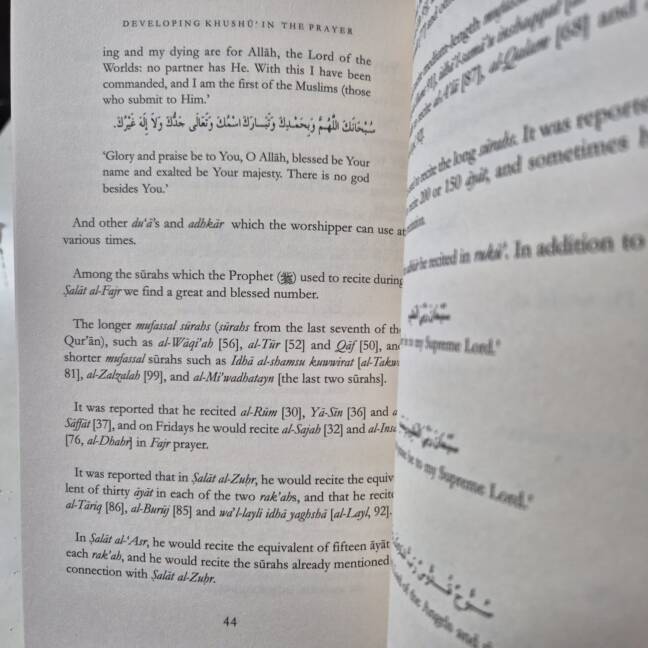 DEVELOPING KHUSHŪʿ IN THE PRAYER
ing and my dying are for Allāh, the Lord of the
Worlds: no partner has He. With this I have been
commanded, and I am the first of the Muslims (those
who submit to Him.’
سُبْحَانَكَ اللَّهُمَّ وَبِحَمْدِكَ وَتَبَارَكَ اسْمُكَ وَتَعَالَى جَدُّكَ وَلَا إِلَهَ غَيْرُكَ.
‘Glory and praise be to You, O Allāh, blessed be Your
name and exalted be Your majesty. There is no god
besides You.’
And other duʿā’s and adhkār which the worshipper can use at
various times.
Among the sūrahs which the Prophet (ﷺ) used to recite during
Ṣalāt al-Fajr we find a great and blessed number.
The longer mufassal sūrahs (sūrahs from the last seventh of the
Qur’ān), such as al-Wāqi’ah [56], al-Tūr [52] and Qāf [50], and
shorter mufassal sūrahs such as Idhā al-shamsu kuwwirat [al-Takw
81], al-Zalzalah [99], and al-Mi’wadhatayn [the last two sūrahs].
It was reported that he recited al-Rūm [30], Yā-Sīn [36] and a
Sāffāt [37], and on Fridays he would recite al-Sajah [32] and al-Insā
[76, al-Dhahr] in Fajr prayer.
It was reported that in Ṣalāt al-Zuhr, he would recite the equiv
lent of thirty āyāt in each of the two rak’ahs, and that he recite
al-Tāriq [86], al-Burūj [85] and wa’l-layli idhā yaghshā [al-Layl, 92].
In Ṣalāt al-‘Asr, he would recite the equivalent of fifteen āyāt
each rak’ah, and he would recite the sūrahs already mentioned
connection with Ṣalāt al-Zuhr.
44
medium-length
recite al-A’lā [87], al-Qalam [68] and
recite the long sūrahs. It was reporte
recite 200 or 150 āyāt, and sometimes
he recited in rukū’. In addition to
to my Supreme Lord.’
to my Supreme Lord.’
of the Angels and